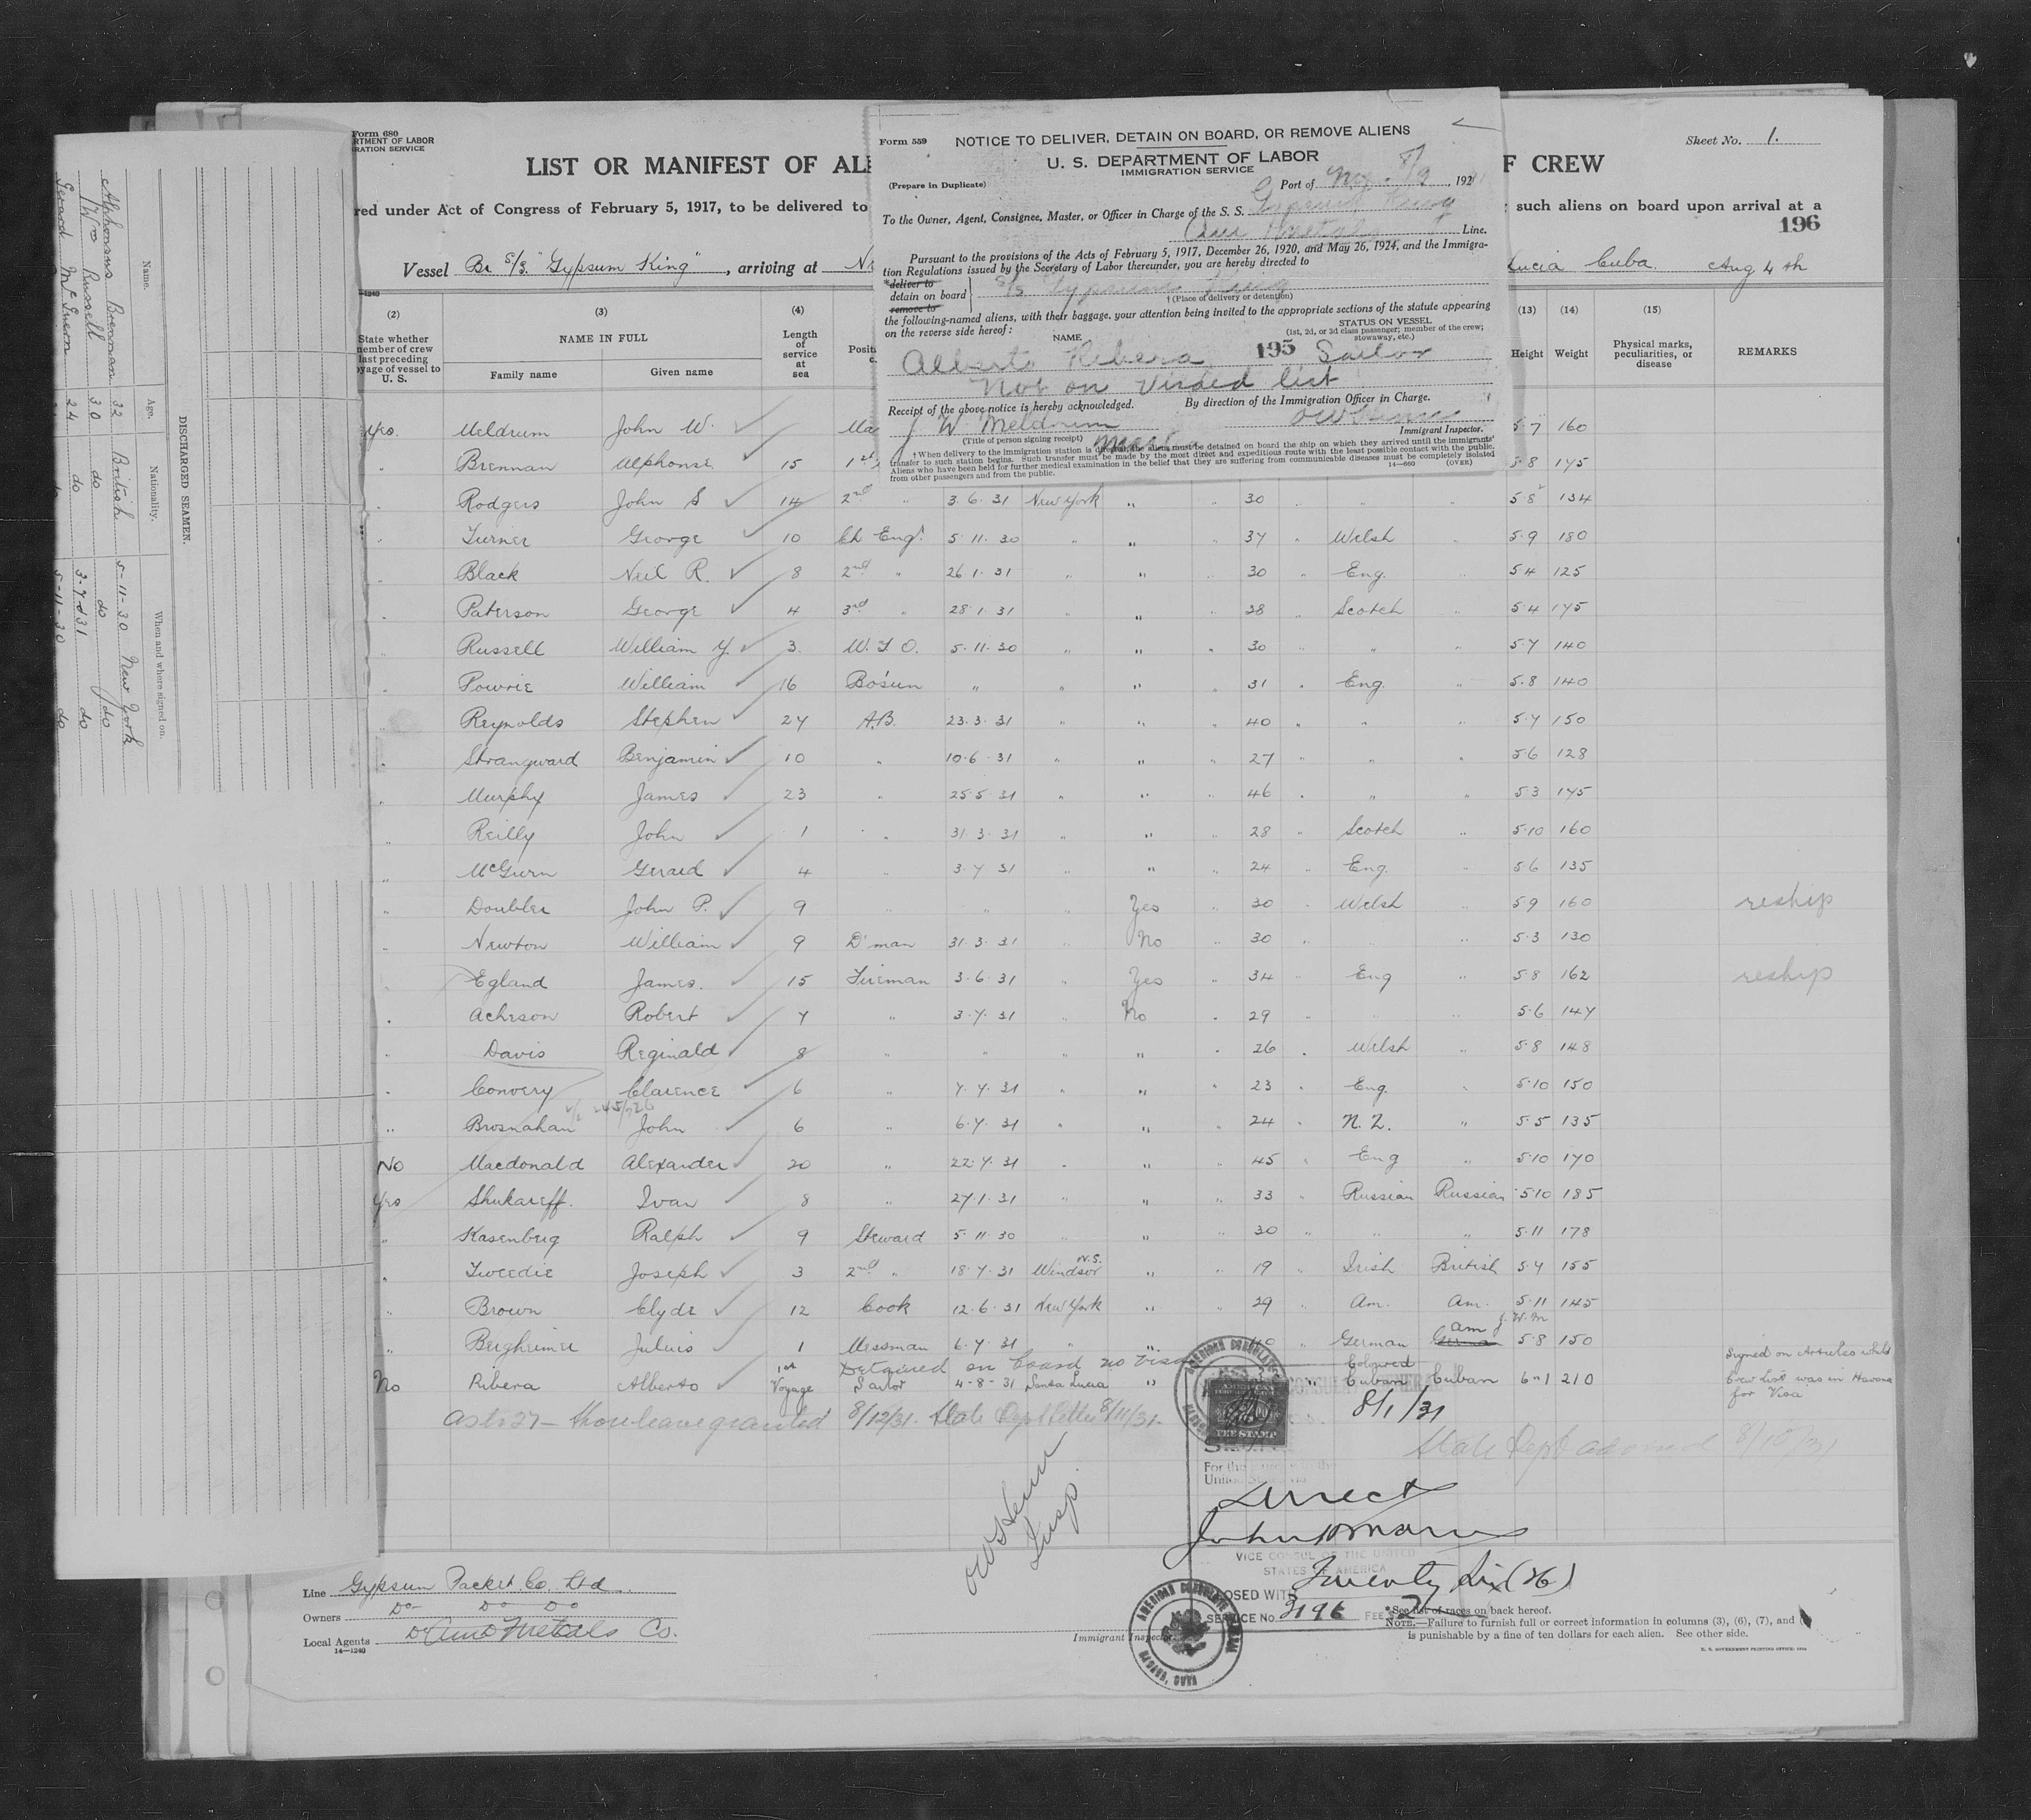 Form 680
RTMENT OF LABOR
RATION SERVICE
Sheet No. 1.
LIST OR MANIFEST OF ALI
F CREW
red under Act of Congress of February 5, 1917, to be delivered to
such aliens on board upon arrival at a
196
Vessel Br S/S. "Gypsum King", arriving at
Lucia Cuba. Aug 4th
Form 559
NOTICE TO DELIVER, DETAIN ON BOARD, OR REMOVE ALIENS
U. S. DEPARTMENT OF LABOR
IMMIGRATION SERVICE
(Prepare in Duplicate)
Port of N.Y. 8/9, 192
To the Owner, Agent, Consignee, Master, or Officer in Charge of the S. S. Gypsum King
Line.
Pursuant to the provisions of the Acts of February 5, 1917, December 26, 1920, and May 26, 1924, and the Immigra-
tion Regulations issued by the Secretary of Labor thereunder, you are hereby directed to
*deliver to
detain on board
remove to
S/S Gypsum King
† (Place of delivery or detention)
the following-named aliens, with their baggage, your attention being invited to the appropriate sections of the statute appearing
on the reverse side hereof:
NAME
STATUS ON VESSEL
(1st, 2d, or 3d class passenger; member of the crew;
stowaway, etc.)
Alberto Ribera 195 Sailor
Not on visaed list
Receipt of the above notice is hereby acknowledged. By direction of the Immigration Officer in Charge.
J W Meldrum
(Title of person signing receipt)
Immigrant Inspector.
† When delivery to the immigration station is directed, the aliens must be detained on board the ship on which they arrived until the immigrants'
transfer to such station begins. Such transfer must be made by the most direct and expeditious route with the least possible contact with the public.
Aliens who have been held for further medical examination in the belief that they are suffering from communicable diseases must be completely isolated
from other passengers and from the public.
14—660 (OVER)
(2) (3) (4) (13) (14) (15)
State whether
member of crew
last preceding
voyage of vessel to
U. S.
NAME IN FULL
Family name Given name
Length
of
service
at
sea
Posit
Height Weight
Physical marks,
peculiarities, or
disease
REMARKS
Yes. Meldrum John W. Mas 5·7 160
" Brennan Alphonse 15 1st 5·8 175
" Rodgers John S 14 2nd " 3.6.31 New York " " 30 " " " 5·8 134
" Turner George 10 Ch Eng. 5.11.30 " " " 37 " Welsh " 5·9 180
" Black Neil R. 8 2nd " 26.1.31 " " " 30 " Eng. " 5·4 125
" Paterson George 4 3rd " 28.1.31 " " " 28 " Scotch " 5·4 175
" Russell William Y. 3. W.T.O. 5.11.30 " " " 30 " " " 5·7 140
" Powrie William 16 Bo'sun " " " " 31 " Eng. " 5·8 140
" Reynolds Stephen 27 A.B. 23.3.31 " " " 40 " " " 5·7 150
" Strangward Benjamin 10 " 10.6.31 " " " 27 " " " 5·6 128
" Murphy James 23 " 25.5.31 " " " 46 " " " 5·3 175
" Reilly John 1 " 31.3.31 " " " 28 " Scotch " 5·10 160
" McGurn Gerard 4 " 3.7.31 " " " 24 " Eng. " 5·6 135
" Doubler John P. 9 " " " Yes " 30 " Welsh " 5·9 160 reship
" Newton William 9 D'man 31.3.31 " No " 30 " " 5·3 130
" Egland James. 15 Fireman 3.6.31 " Yes " 34 " Eng " 5·8 162 reship
" Acheson Robert 7 " 3.7.31 " No " 29 " " " 5·6 147
" Davis Reginald 8 " " " " " 26 " Welsh " 5·8 148
" Convery Clarence 6 " 7.7.31 " " " 23 " Eng. " 5·10 150
" Brosnahan John 6 " 6.7.31 " " " 24 " N. Z. " 5·5 135
No Macdonald Alexander 20 " 22.7.31 " " " 45 " Eng " 5·10 170
Yes Shukareff. Ivan 8 " 27.1.31 " " " 33 " Russian Russian 5·10 185
" Kasenberg Ralph 9 Steward 5.11.30 " " " 30 " " " 5·11 178
" Tweedie Joseph 3 2nd " 18.7.31 Windsor N.S. " " 19 " Irish British 5·7 155
" Brown Clyde 12 Cook 12.6.31 New York " " 29 " Am. Am. 5·11 145
" Bergheimer Julius 1 Messman 6.7.31 " " 40 " German Am J.W.M 5·8 150
Detained on board no visa
No Ribera Alberto 1st Voyage Sailor 4-8-31 Santa Lucia " " Coloured Cuban Cuban 6-1 210
Signed on Articles whilst
Crew List was in Havana
for Visa
8/12/31. State Dept letter 8/11/31.
8/1/31
State Dept 8/10/31
FEE STAMP
For the
Direct
VICE CONSUL OF THE UNITED
STATES OF AMERICA
Twenty Six (26)
SERVICE No. 3196 FEE $ 2
AMERICAN CONSULATE GENERAL
HABANA, CUBA
Insp.
Line Gypsum Packet. Co. Ltd.
Owners Do Do Do
Local Agents Metals Co.
14—1240
Immigrant Inspector.
*See list of races on back hereof.
NOTE.—Failure to furnish full or correct information in columns (3), (6), (7), and
is punishable by a fine of ten dollars for each alien. See other side.
U. S. GOVERNMENT PRINTING OFFICE
DISCHARGED SEAMEN.
Name. Age. Nationality. When and where signed on.
Alphonsus Brennan 32 British 5-11-30 New York
Wm Russell 30 do do do
Gerard McGuern 24 do 3-7-31 do
5-11-30 do